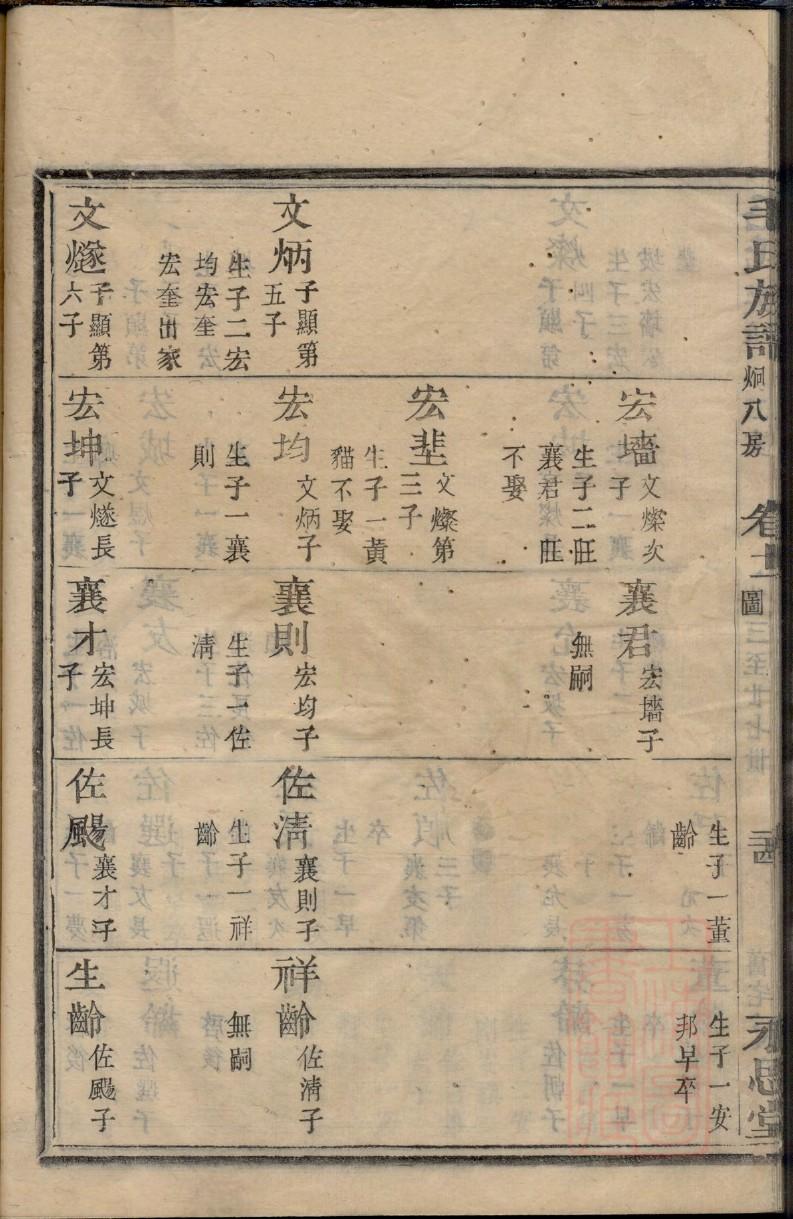 毛氏族譜
炯八房
卷十一
圖
永思堂
文炳
子顯第
五子
生子二宏
均宏奎
宏奎出家
文燧
子顯第
六子
宏墻
文燦次
子
生子二旺
襄君旺
不娶
宏堻
文燦第
三子
生子一黄
貓不娶
宏均
文炳子
生子一襄
則
宏坤
文燧長
子
襄君
宏墻子
無嗣
襄則
宏均子
生子一佐
清
襄才
宏坤長
子
生子一董
齡
佐清
襄則子
生子一祥
齡
佐颺
襄才子
生子一安
邦早卒
祥齡
佐清子
無嗣
生齡
佐颺子